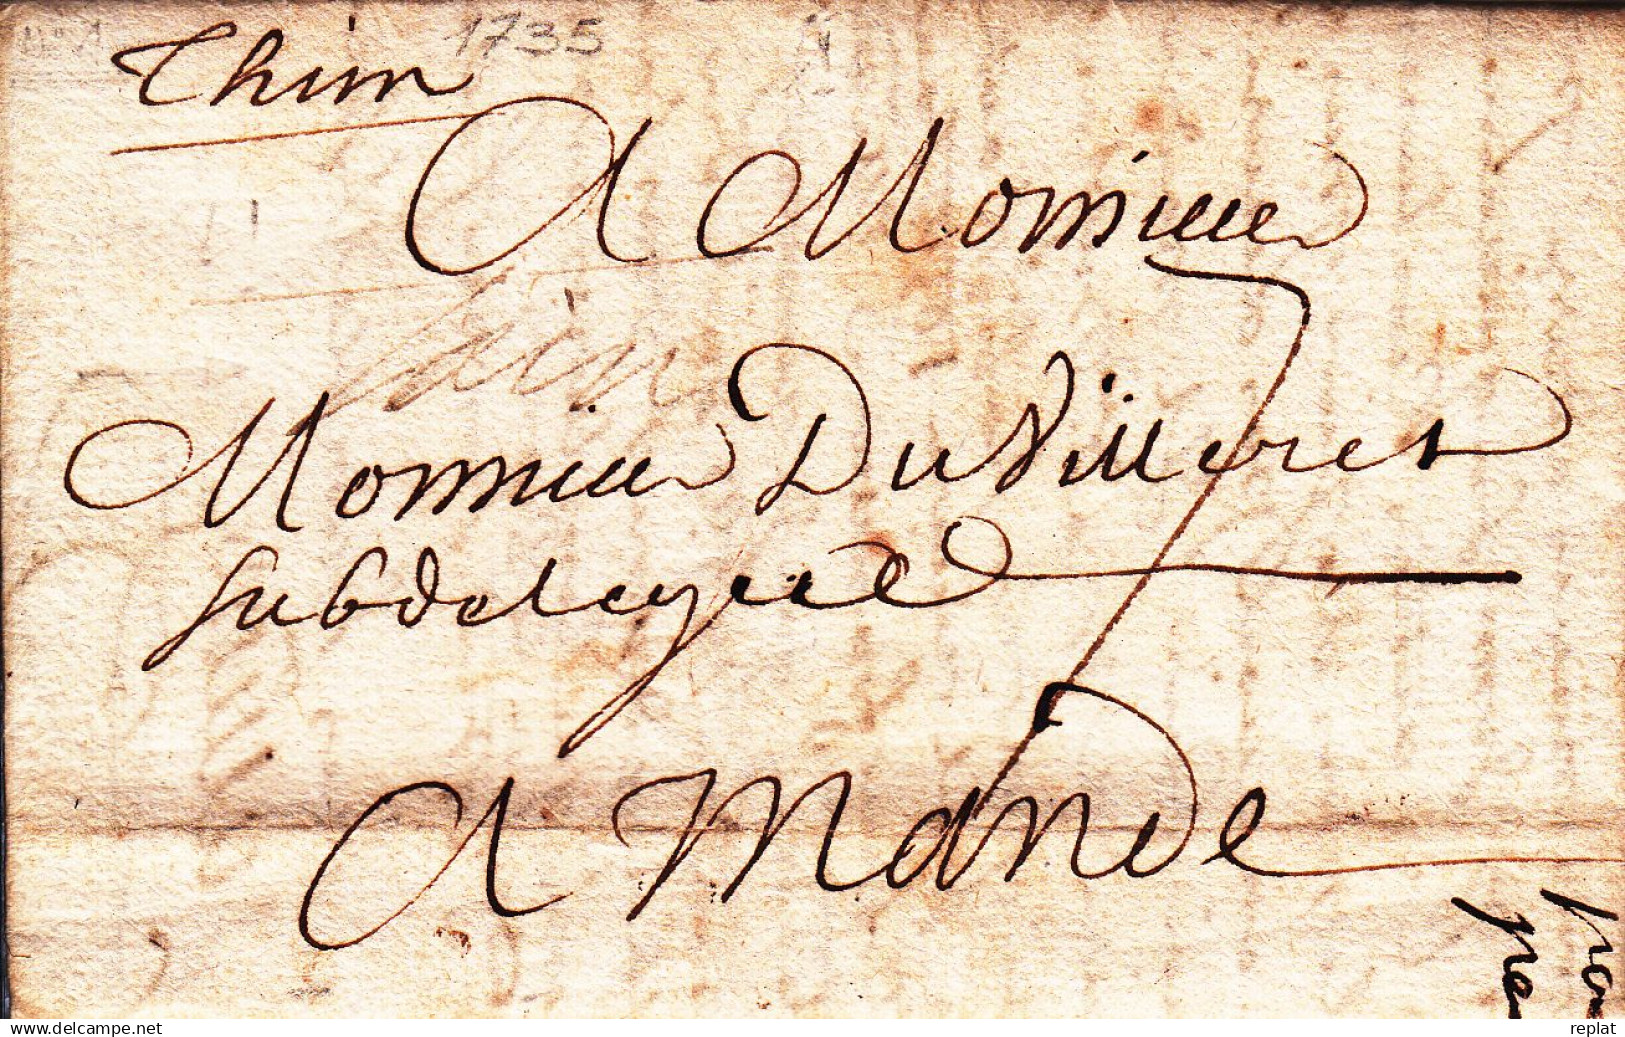 Thim 1735
A Monsieur
Monsieur Du Villeret
subdelegué
A Mande
delcampe.net
replat